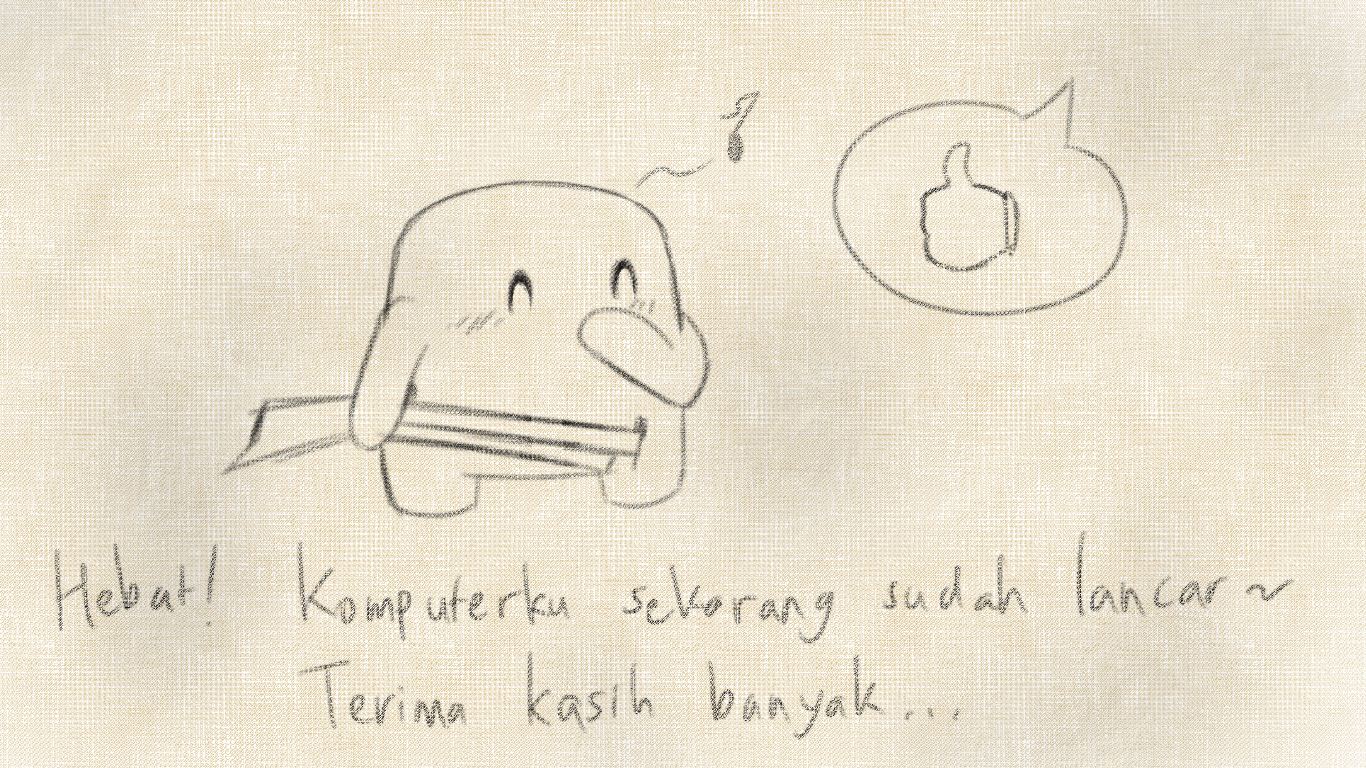 Hebat! Komputerku sekarang sudah lancar~
Terima kasih banyak...